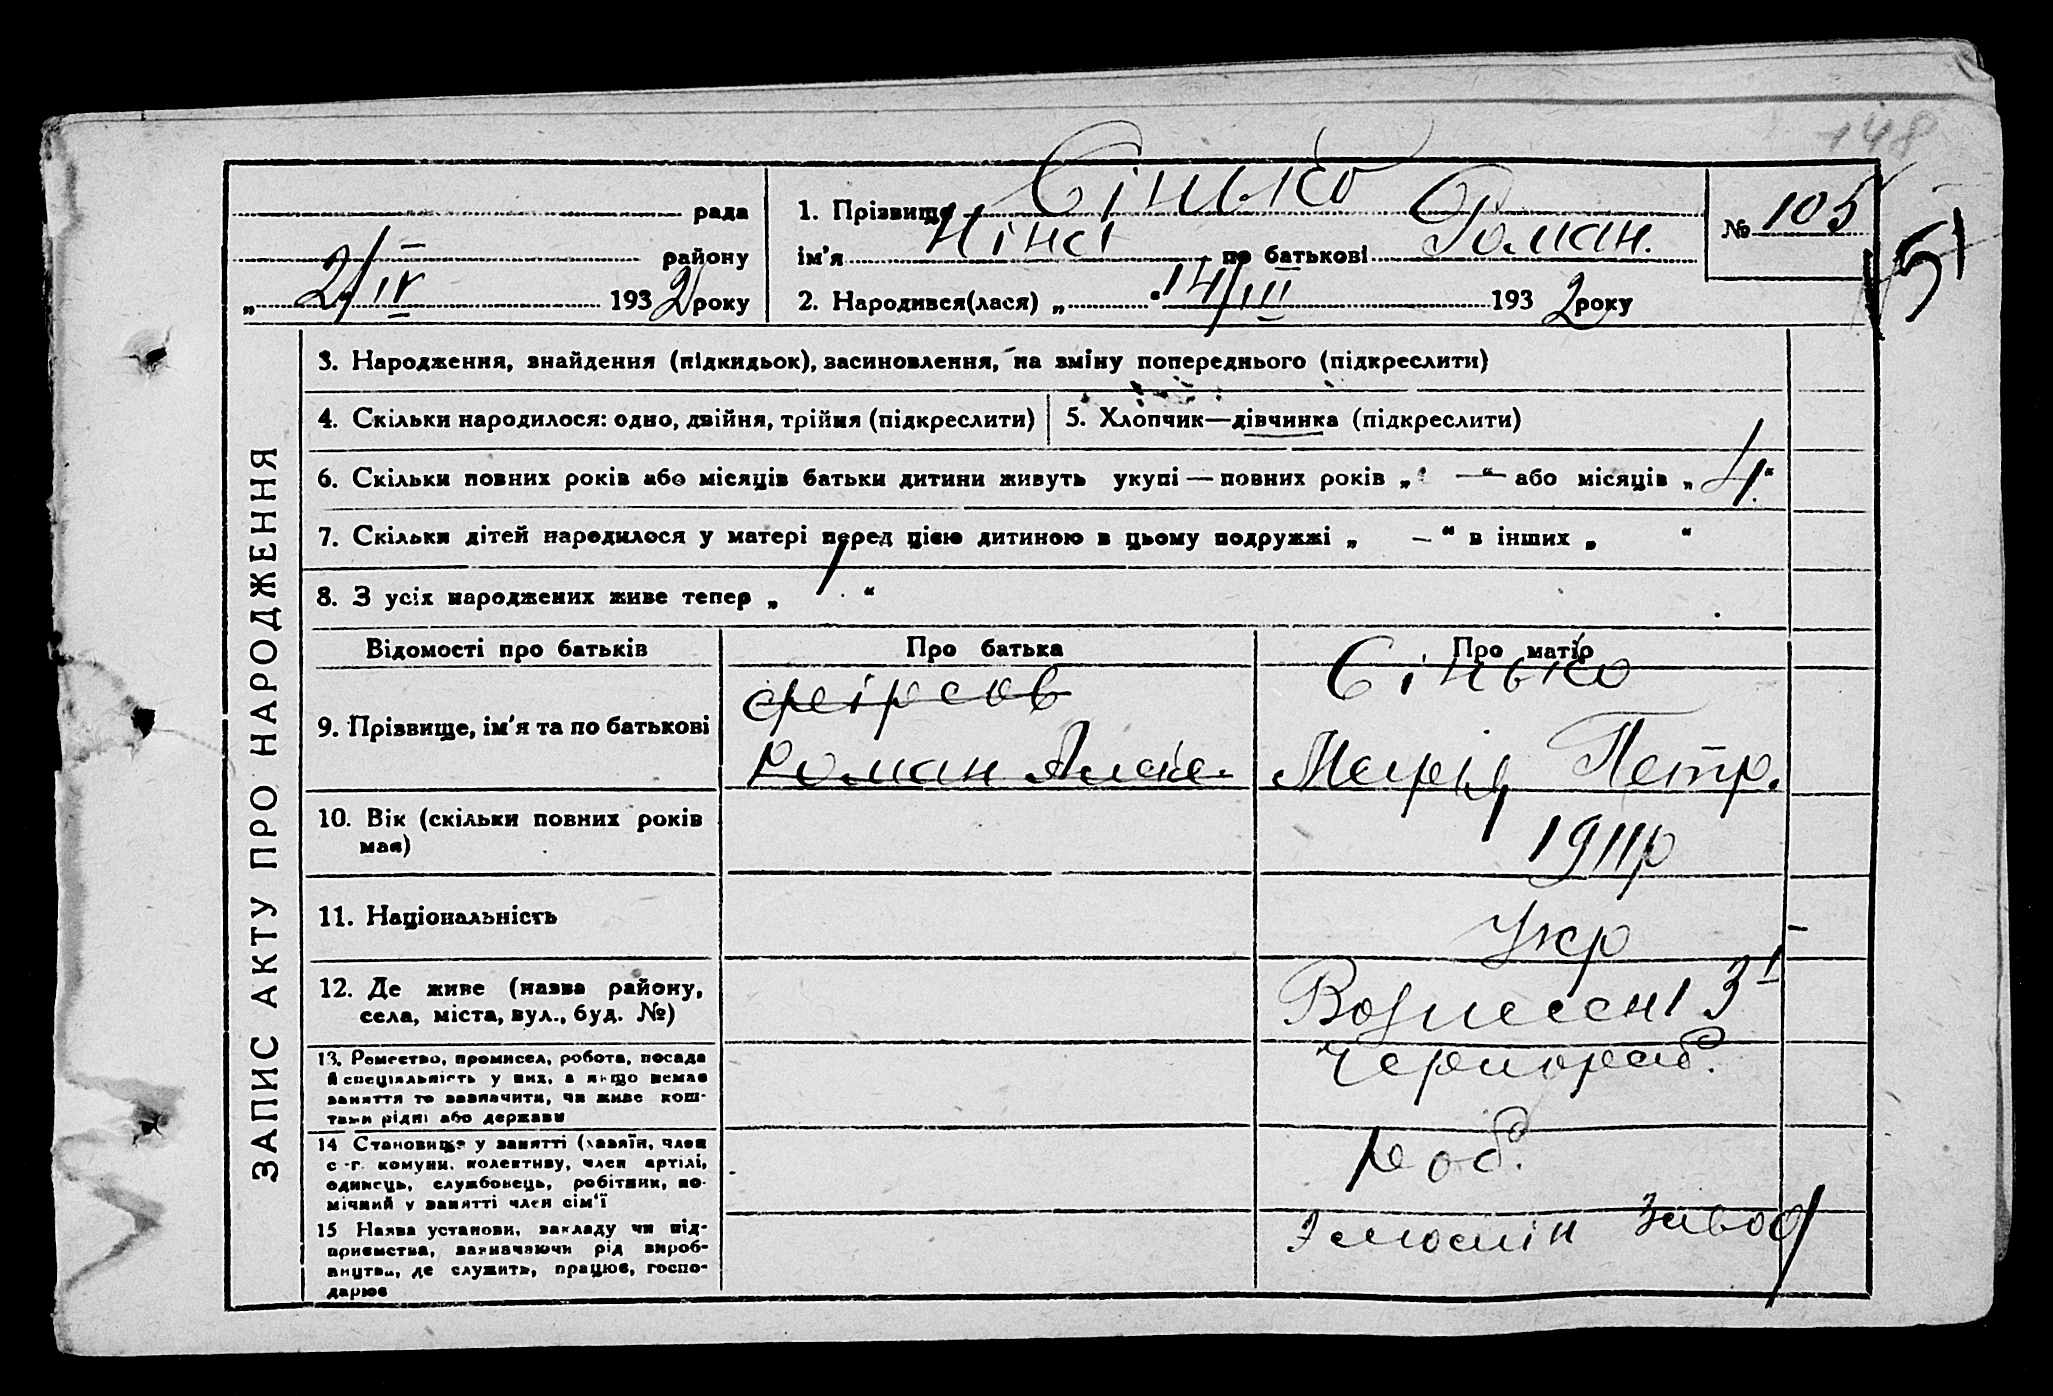 148
рада
1. Прізвище Сінько
№ 105
району
ім'я Ніна по батькові Роман.
51
„ 2/IV 1932 року
2. Народився(лася) „ “ 14/III 1932 року
ЗАПИС АКТУ ПРО НАРОДЖЕННЯ
3. Народження, знайдення (підкидьок), засиновлення, на зміну попереднього (підкреслити)
4. Скільки народилося: одно, двійня, трійня (підкреслити)
5. Хлопчик—дівчинка (підкреслити)
6. Скільки повних років або місяців батьки дитини живуть укупі — повних років „ — “ або місяців „ 4 “
7. Скільки дітей народилося у матері перед цією дитиною в цьому подружжі „ — “ в інших „ “
8. З усіх народжених живе тепер „ 1 “
Відомості про батьків
Про батька
Про матір
9. Прізвище, ім'я та по батькові
Роман Алек.
Сінько
Марія Петр.
10. Вік (скільки повних років
має)
1911р
11. Національність
Укр
12. Де живе (назва району,
села, міста, вул., буд. №)
Вознесені
13. Ремество, промисел, робота, посада
й спеціяльність у них, а якщо немає
заняття то зазначити, чи живе кош-
тами рідні або держави
Чорнороб.
14 Становище у занятті (хазяїн, член
с-г. комуни, колективу, член артілі,
одинець, службовець, робітник, по-
мічний у занятті член сім'ї
роб.
15 Назва установи, закладу чи під-
приємства, зазначаючи рід вироб-
ництва, де служить, працює, госпо-
дарює
завод